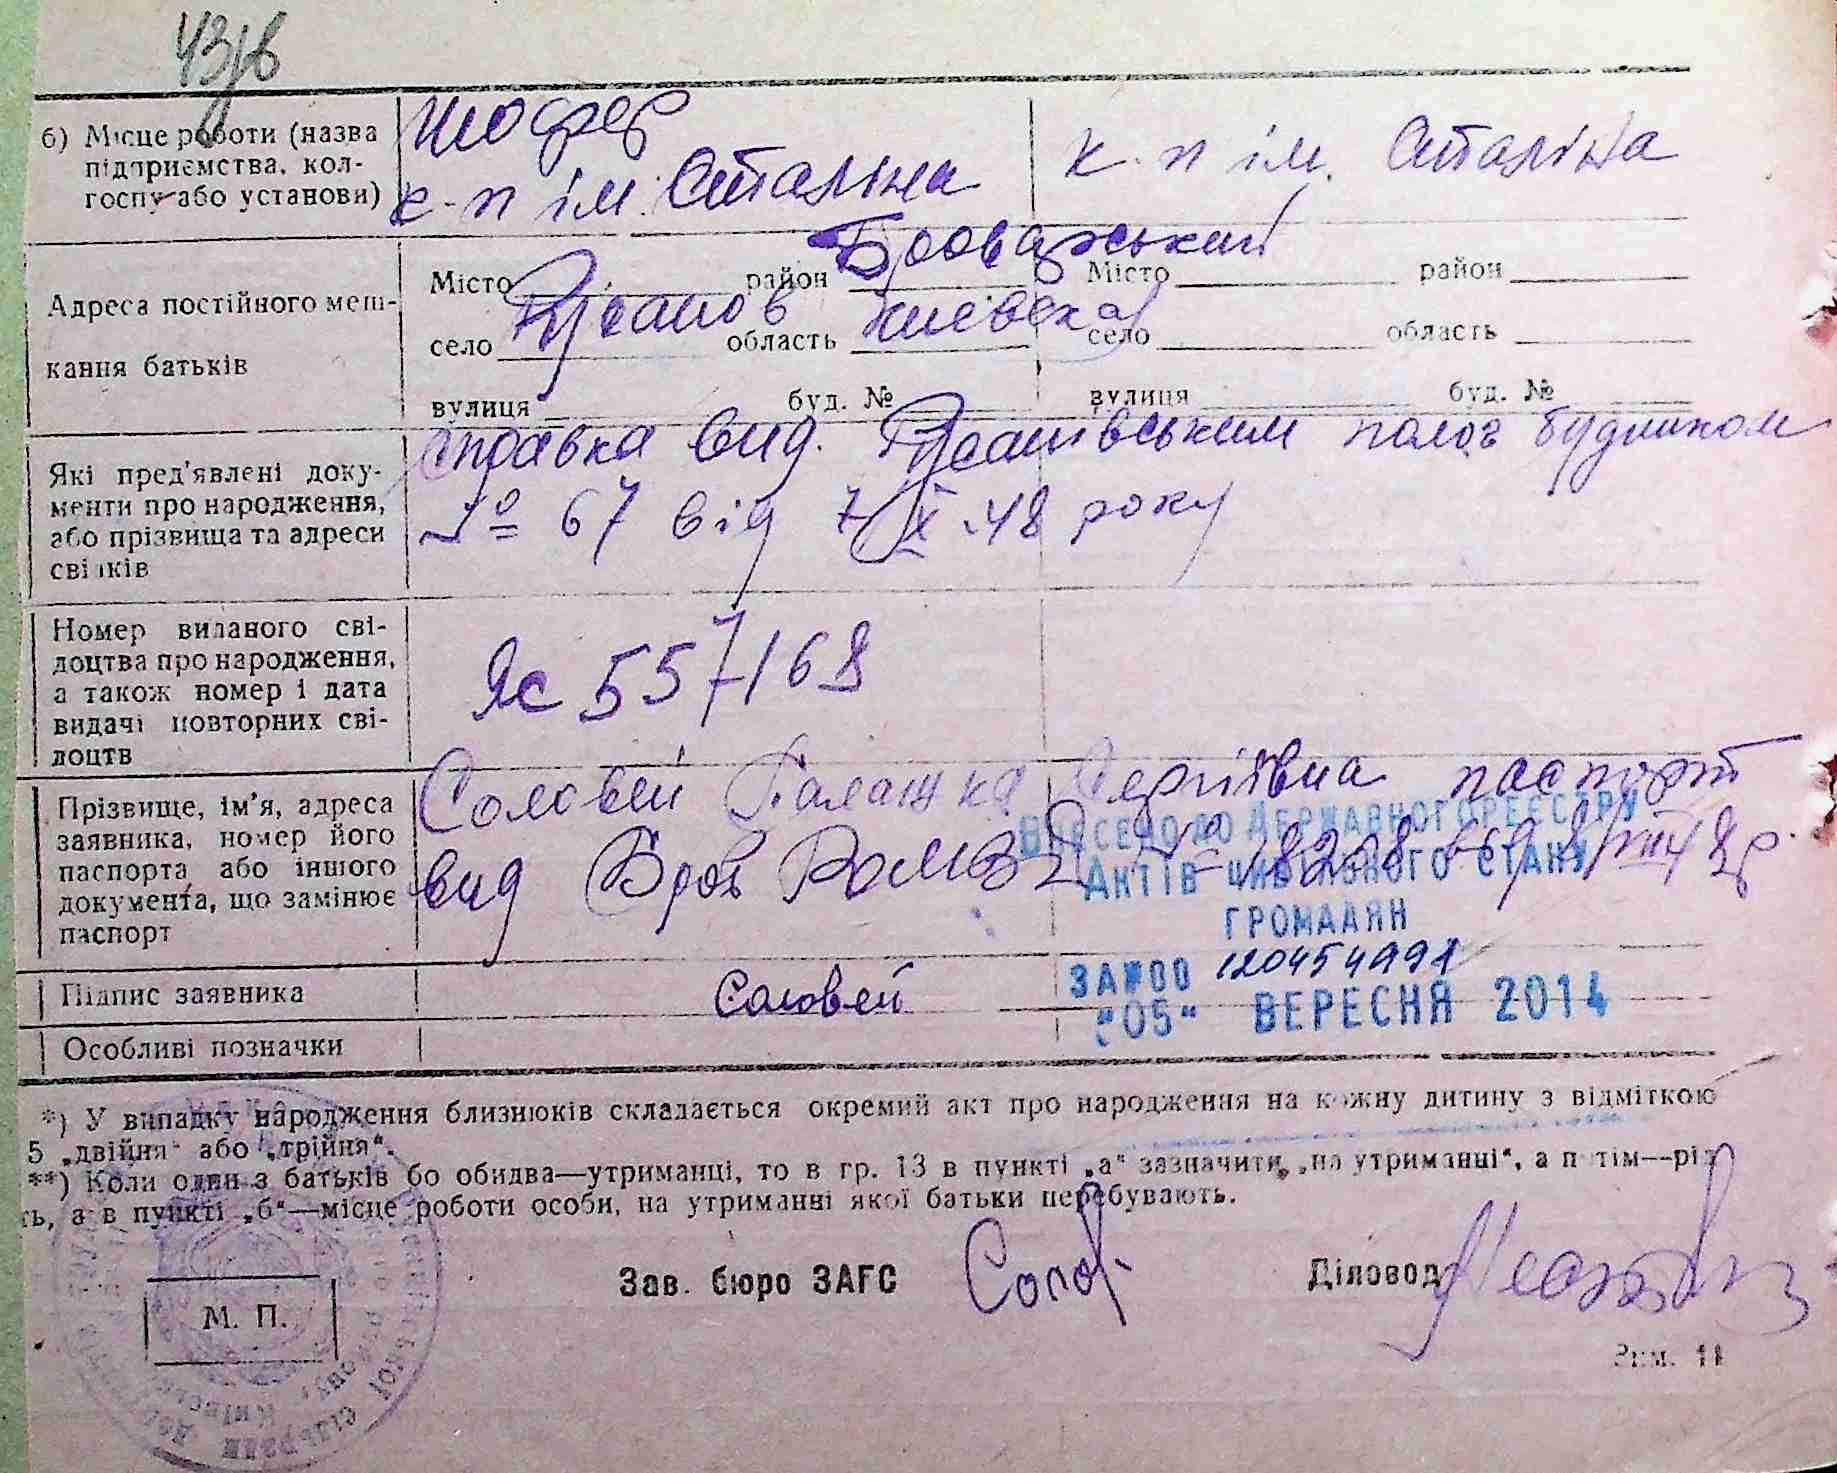 43зв
б) Місце роботи (назва
підприємства, кол-
госпу або установи)
шофер
к-п ім. Сталіна
к-п ім. Сталіна
Адреса постійного меш-
кання батьків
Місто район Броварський
село Русанов область Киевска
вулиця буд. №
Місто район
село область
вулиця буд. №
Які пред'явлені доку-
менти про народження,
або прізвища та адреси
свідків
справка вид. Русанівським полог будинком
№ 67 від 7/IX.48 року
Номер виданого сві-
доцтва про народження,
а також номер і дата
видачі повторних сві-
доцтв
Яс 557168
Прізвище, ім'я, адреса
заявника, номер його
паспорта або іншого
документа, що замінює
паспорт
Соловей Палажка Сергіївна паспорт
вид Бров РОМВД № 18208 від
Внесено до Державного реєстру
Актів цивільного стану
громадян
120454991
"05" ВЕРЕСНЯ 2014
Підпис заявника
Соловей
Особливі позначки
*) У випадку народження близнюків складається окремий акт про народження на кожну дитину з відміткою
5 „двійня" або „трійня".
**) Коли один з батьків бо обидва—утриманці, то в гр. 13 в пункті „а" зазначити „на утриманці", а потім—рід
ть, а в пункті „б"—місце роботи особи, на утриманні якої батьки перебувають.
Зав. бюро ЗАГС
Діловод
М. П.